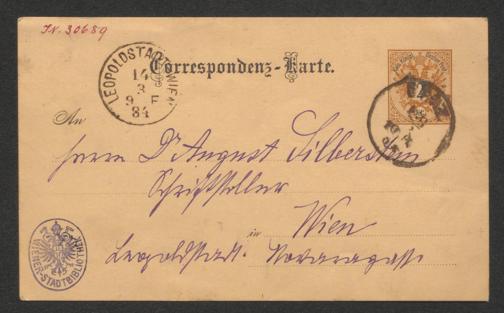 J.N. 30689
Correspondenz-Karte.
LEOPOLDSTADT WIEN
14
3
9 F
84
An
Herrn Dr August Silberstein
Schriftsteller
in Wien
Leopoldstadt. Novaragasse
WIENER-STADTBIBLIOTHEK